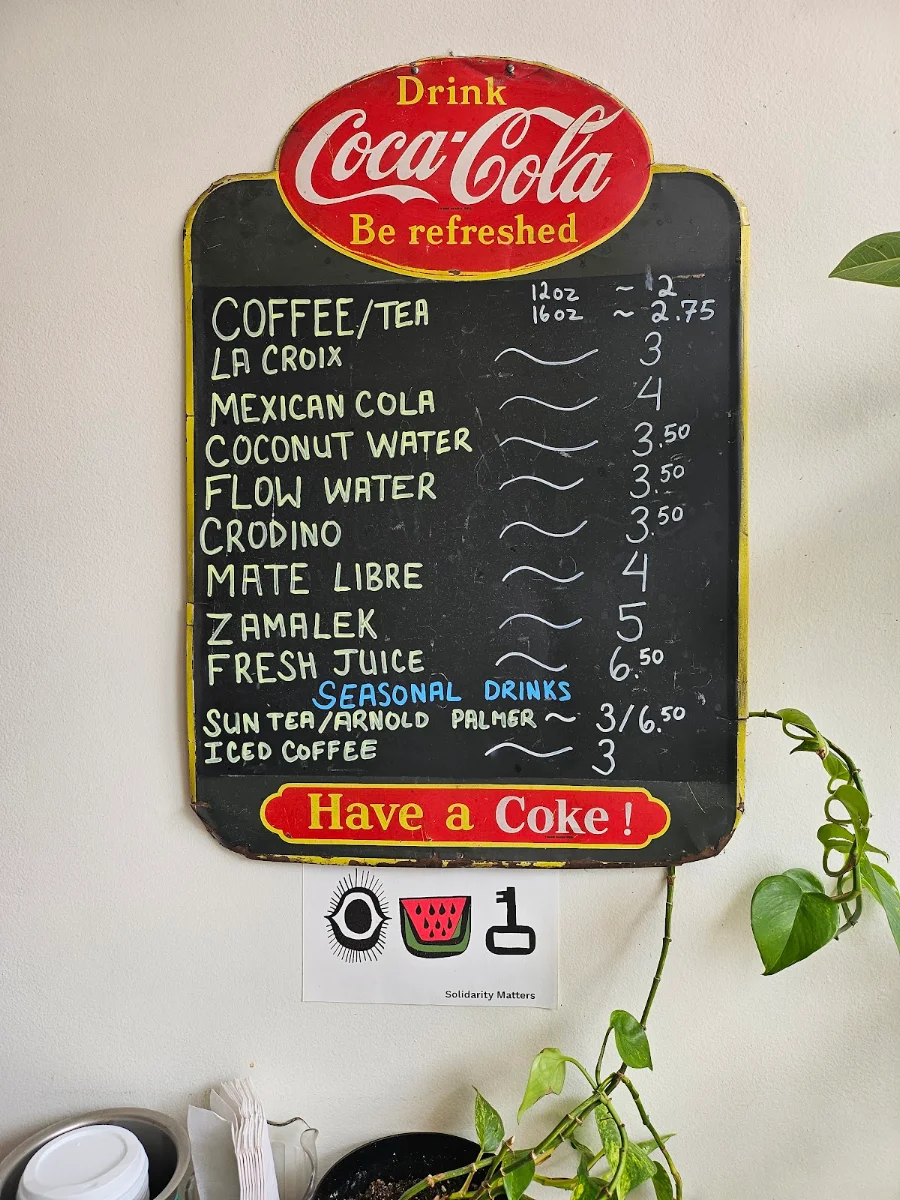 Drink
Coca-Cola
Be refreshed
COFFEE/TEA 12oz ~ 2
16oz ~ 2.75
LA CROIX 3
MEXICAN COLA 4
COCONUT WATER 3.50
FLOW WATER 3.50
CRODINO 3.50
MATE LIBRE 4
ZAMALEK 5
FRESH JUICE 6.50
SEASONAL DRINKS
SUN TEA/ARNOLD PALMER ~ 3/6.50
ICED COFFEE 3
Have a Coke!
Solidarity Matters